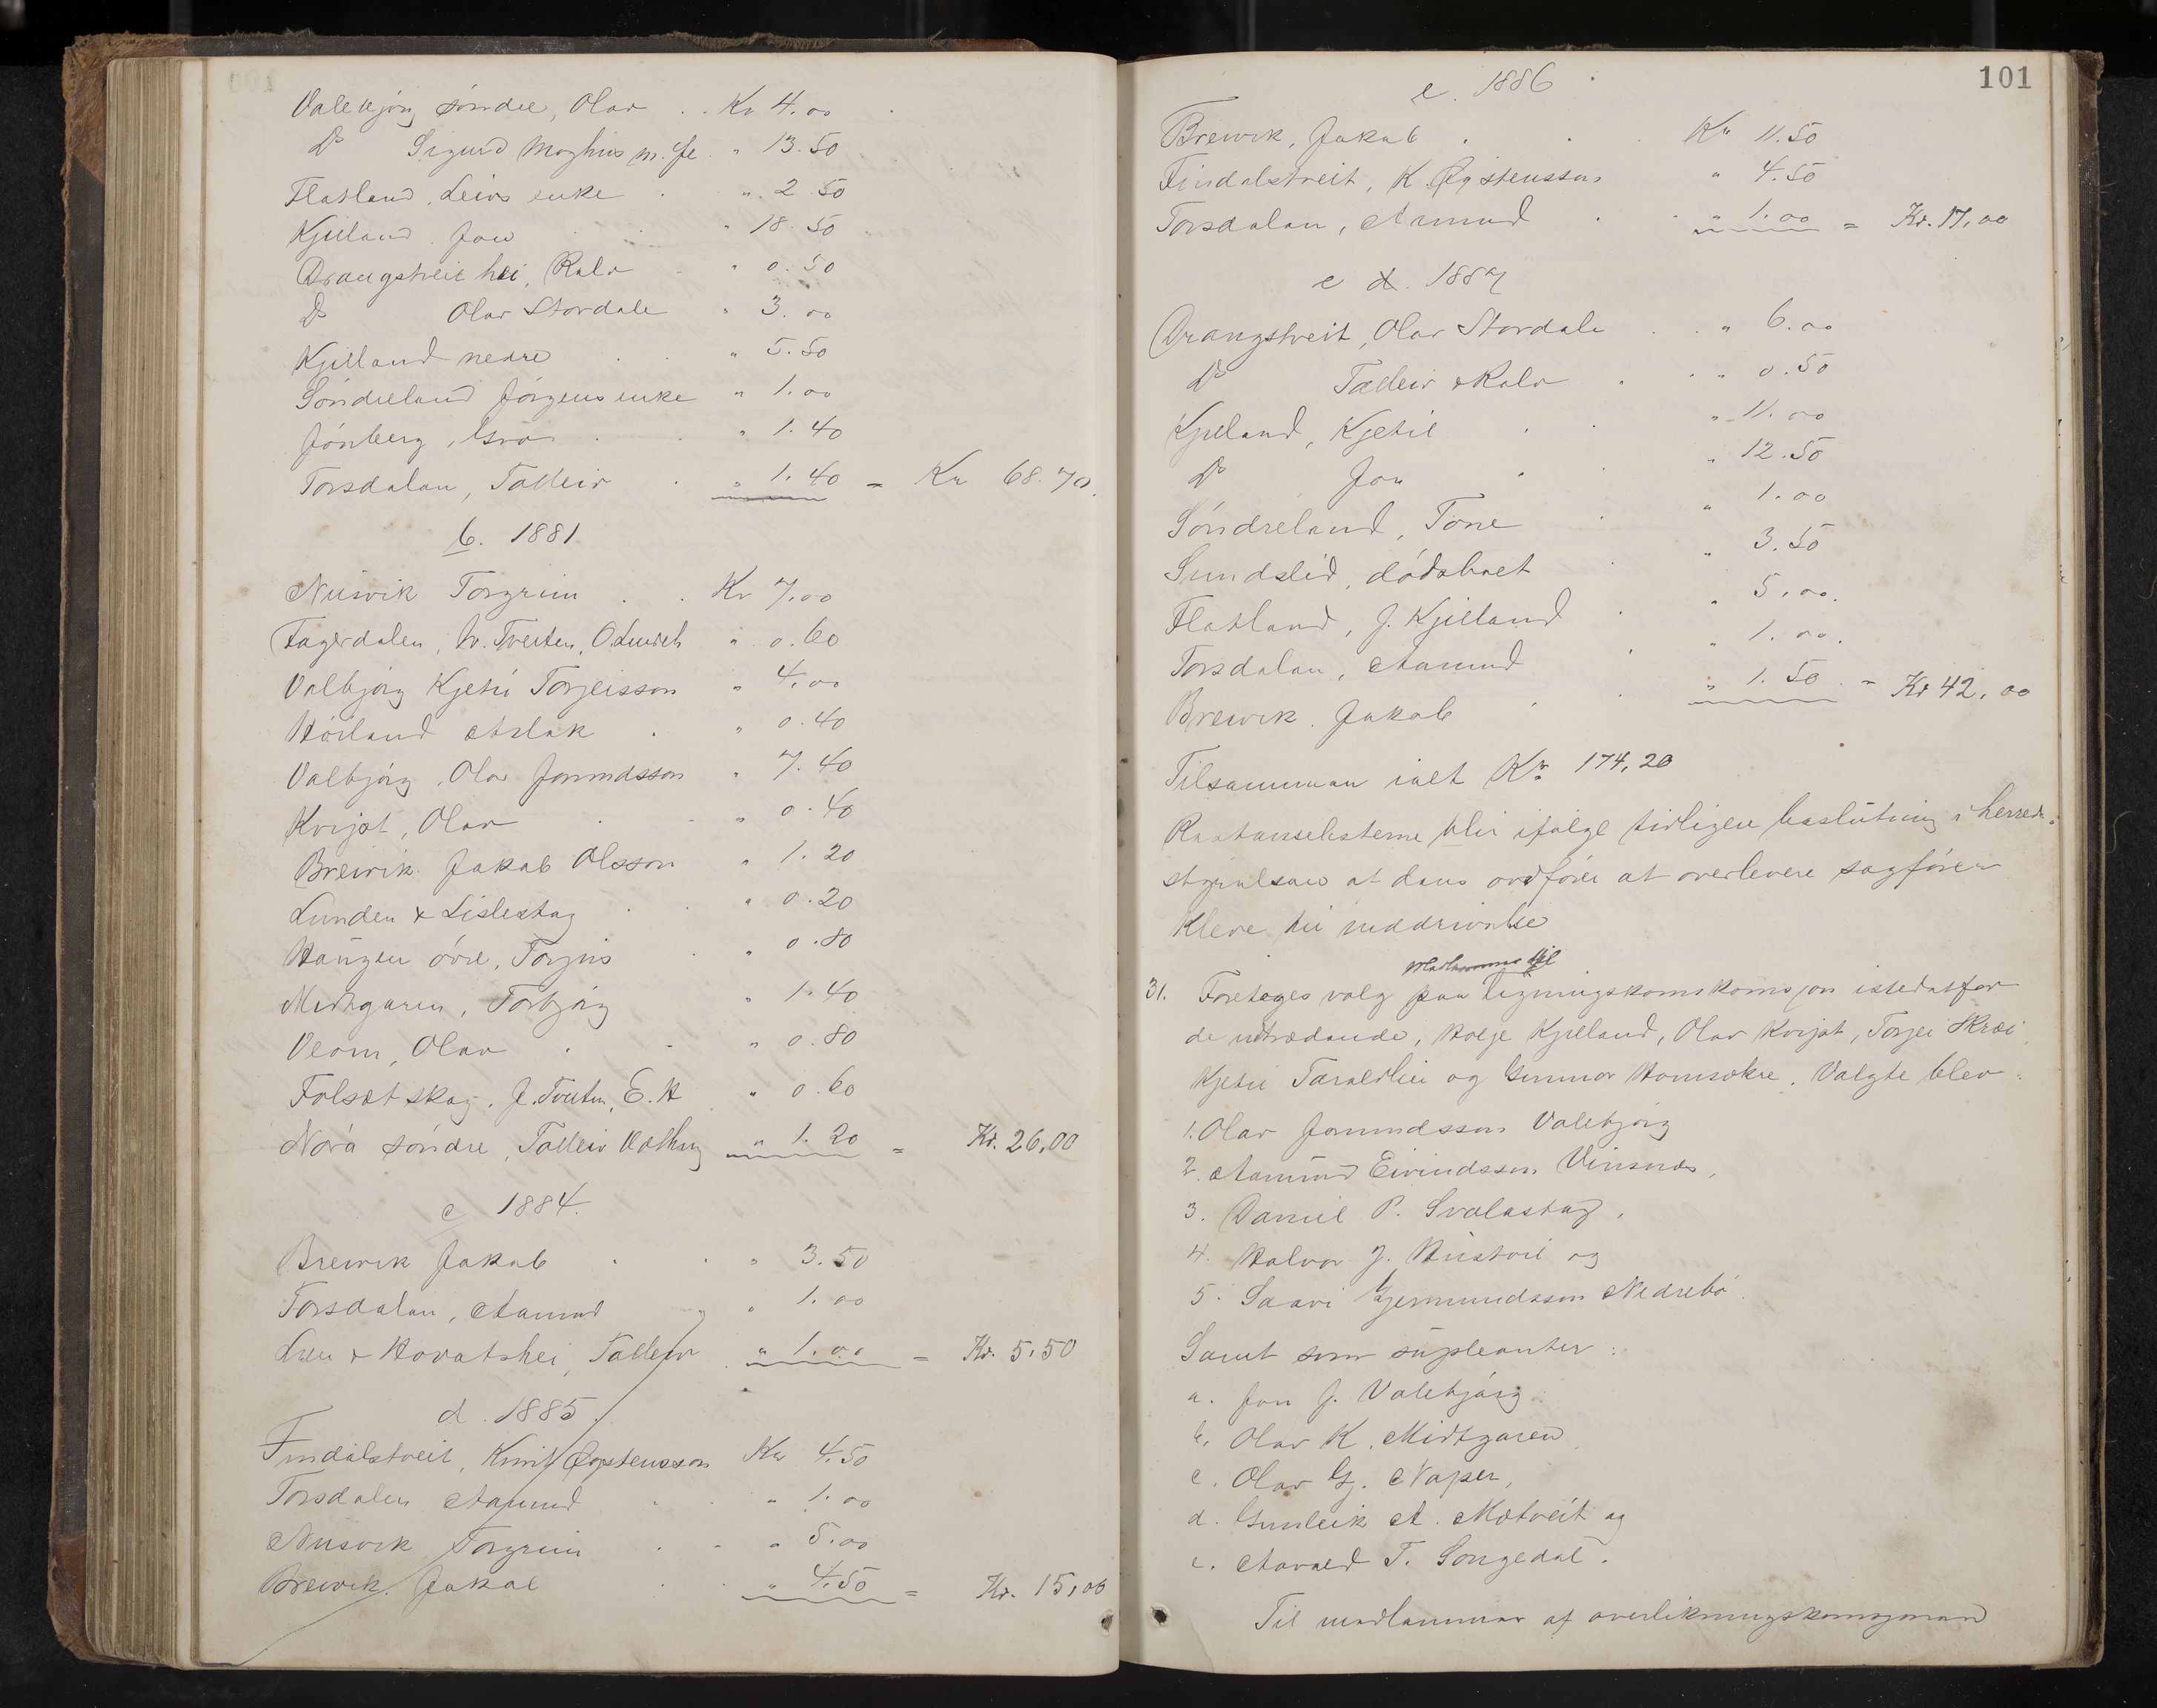 Valebjörg söndre, Olav . . Kr 4.00
Do Sigurd Moghus m. fl. " 13.50
Flatland, Leivs enke . " 2 50
Kjilland . Jon " 18.50
Drangstveit hei, Kalv " 0.50
Do Olav Stordale " 3.00
Kjilland nedre " 5.50
Söndreland Jörgens enke " 1.00
Jönberg, Gro . " 1.40
Torsdalen, Talleiv . " 1.40 = Kr 68.70.
b. 1881
Nusvik Torgrim . . Kr 7.00
Fagerdalen, h. Tveiten, O. " 0.60
Valbjörg Kjetil Torjeisson " 4.00
Höiland Aslak . " 0.40
Valbjörg, Olav Jormndsson " 7.40
Kvijot, Olav . " 0.40
Breivik. Jakab Olsson " 1.20
Lunden & Lislestog . " 0.20
Haugen övre, Torjus " 0.80
Midtgaren, Torbjörg " 1.40
Veom, Olav . " 0.80
Folsæt skog. J. Tveiten, E. H " 0.60
Norá söndre, Talleiv " 1.20 = Kr. 26,00
c 1884.
Breivik Jakab . " 3.50
Torsdalen, Aamund " 1.00
Lien & Hovatshei, Talleiv . " 1.00 = Kr. 5,50
d. 1885.
Findalstveit, Knut Øystensson Kr 4.50
Torsdalen Aamund " 1.00
Nusvik Torgrim " 5.00
Breivik. Jakab " 4.50 = Kr. 15,00
101
e. 1886
Breivik, Jakab . Kr 11.50
Findalstveit, K. Øystensson " 4.50
Torsdalen, Amund . " 1.00 = Kr. 17,00
e d. 1887
Drangstveit, Olav Stordale . " 6.00
Do Talleiv & Kalv . " 0.50
Kjilland, Kjetil " 11.00
Do Jon " 12.50
Söndreland, Tone . " 1.00
Sundslid, dödsboet " 3.50
Flatland, J. Kjilland . " 5.00.
Torsdalen, Aamund " 1.00.
Breivik. Jakab " 1.50 = Kr 42,00
Tilsamman ialt Kr 174,20
Restanselisterne blir ifølge tidligere beslutning i herreds-
styrelsen at dens ordfører at overlevere sagfører
Kleve til inddrivelse
medlemmer til
31. Foretoges valg paa ligningskomskomsjon istedatfor
de udtrædande, Holje Kjilland, Olav Kvijot, Torjei Skrei
Kjetil Taraldlien og Gunnar Homsokre. Valgte blev:
1. Olav Jormundsson Valebjörg
2. Aamund Eivindsson Vinsnes,
3. Daniel P. Svalastog,
4. Halvor J. Hustveit og
5. Saavi Gjermundsson Nedrebö.
Samt som supleanter:
a. Jon J. Valebjörg
b. Olav K. Midtgaren
c. Olav G. Naper,
d. Gunleik A. Motveit og
e. Aavald T. Songedal.
Til medlammar af overlikningskomsjonen